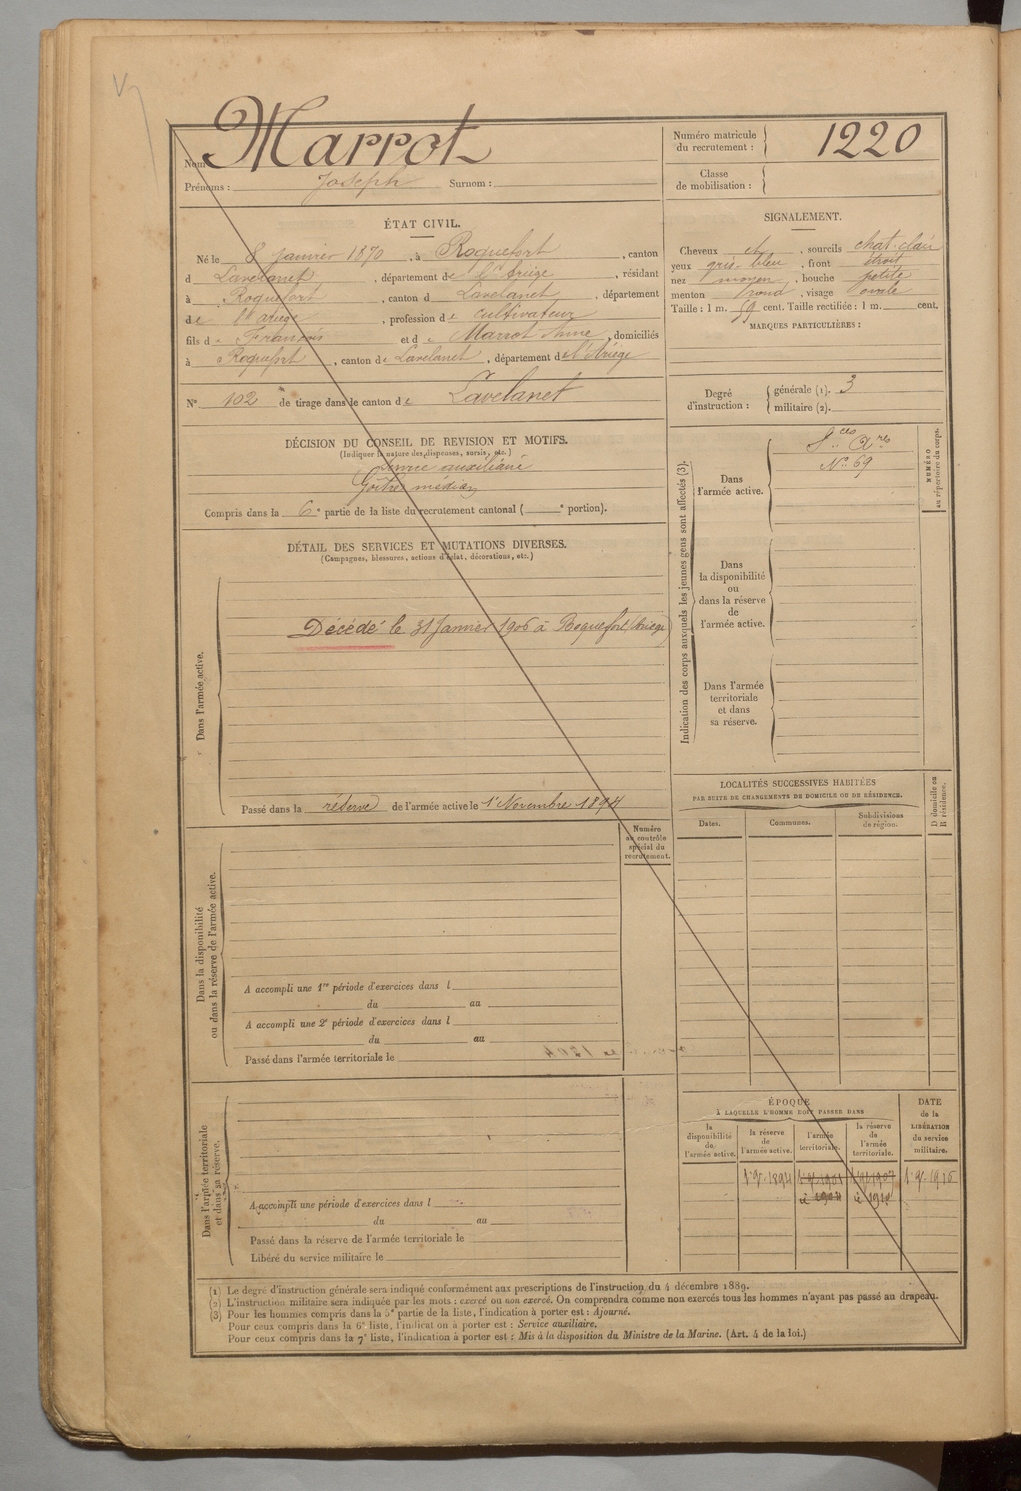 Nom Marrot
Prénoms : Joseph Surnom :
Numéro matricule du recrutement : 1220
Classe de mobilisation :
ÉTAT CIVIL.
Né le 8 Janvier 1870, à Roquefort, canton
d Lavelanet, département de l'Ariège, résidant
à Roquefort, canton d Lavelanet, département
de l'Ariège, profession de cultivateur
fils de François et de Marrot Anne, domiciliés
à Roquefort, canton de Lavelanet, département de l'Ariège
N° 102 de tirage dans le canton de Lavelanet
SIGNALEMENT.
Cheveux et, sourcils chat-clair
yeux gris-bleu, front étroit
nez moyen, bouche petite
menton rond, visage ovale
Taille : 1 m. 59 cent. Taille rectifiée : 1 m. cent.
MARQUES PARTICULIÈRES :
Degré d'instruction : générale (1). 3
militaire (2).
DÉCISION DU CONSEIL DE REVISION ET MOTIFS.
(Indiquer la nature des dispenses, sursis, etc.)
Service auxiliaire
Goître médian
Compris dans la 6e partie de la liste du recrutement cantonal ( e portion).
Indication des corps auxquels les jeunes gens sont affectés (3).
Dans l'armée active.
Sces Ares
N° 69
NUMÉRO au répertoire du corps.
Dans la disponibilité ou dans la réserve de l'armée active.
Dans l'armée territoriale et dans sa réserve.
DÉTAIL DES SERVICES ET MUTATIONS DIVERSES.
(Campagnes, blessures, actions d'éclat, décorations, etc.)
Dans l'armée active.
Décédé le 31 Janvier 1906 à Roquefort (Ariège)
Passé dans la réserve de l'armée active le 1er Novembre 1894
LOCALITÉS SUCCESSIVES HABITÉES
PAR SUITE DE CHANGEMENTS DE DOMICILE OU DE RÉSIDENCE.
Dates. Communes. Subdivisions de région. D domicile ou R résidence.
Numéro au contrôle spécial du recrutement.
Dans la disponibilité ou dans la réserve de l'armée active.
A accompli une 1re période d'exercices dans l
du au
A accompli une 2e période d'exercices dans l
du au
Passé dans l'armée territoriale le
Dans l'armée territoriale et dans sa réserve.
A accompli une période d'exercices dans l
du au
Passé dans la réserve de l'armée territoriale le
Libéré du service militaire le
ÉPOQUE
A LAQUELLE L'HOMME DOIT PASSER DANS
la disponibilité de l'armée active.
la réserve de l'armée active.
l'armée territoriale.
la réserve de l'armée territoriale.
DATE de la LIBÉRATION du service militaire.
(1) Le degré d'instruction générale sera indiqué conformément aux prescriptions de l'instruction du 4 décembre 1889.
(2) L'instruction militaire sera indiquée par les mots : exercé ou non exercé. On comprendra comme non exercés tous les hommes n'ayant pas passé au drapeau.
(3) Pour les hommes compris dans la 5e partie de la liste, l'indication à porter est : Ajourné.
Pour ceux compris dans la 6e liste, l'indication à porter est : Service auxiliaire.
Pour ceux compris dans la 7e liste, l'indication à porter est : Mis à la disposition du Ministre de la Marine. (Art. 4 de la loi.)